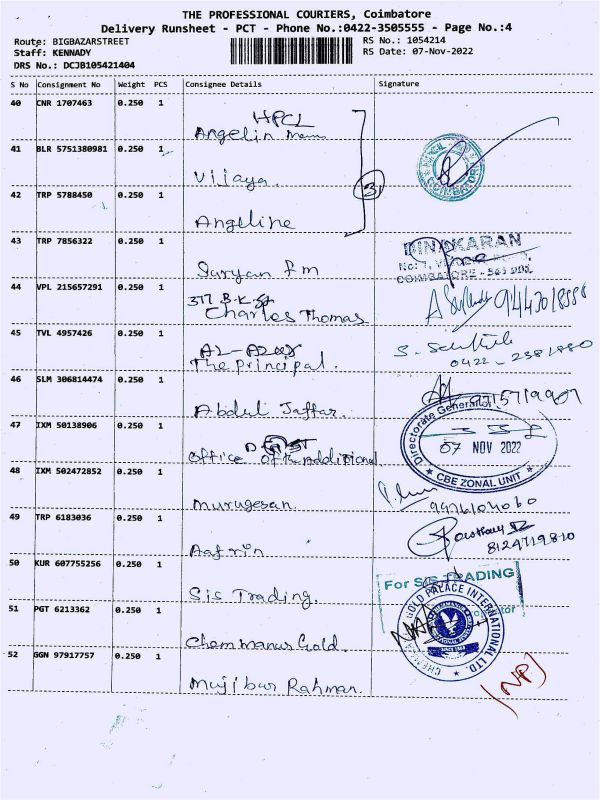 THE PROFESSIONAL COURIERS, Coimbatore
Delivery Runsheet - PCT - Phone No.:0422-3505555 - Page No.:4
Route: BIGBAZARSTREET
RS No.: 1054214
Staff: KENNADY
RS Date: 07-Nov-2022
DRS No.: DCJB105421404
S No Consignment No Weight PCS Consignee Details Signature
40 CNR 1707463 0.250 1
HPCL
Angelin
41 BLR 5751380981 0.250 1
Vijaya.
3
42 TRP 5788450 0.250 1
Angeline
43 TRP 7856322 0.250 1
DINAKARAN
COIMBATORE
44 VPL 215657291 0.250 1
377 B.K.St
Charles Thomas
45 TVL 4957426 0.250 1
The Principal.
0422-2381880
46 SLM 306814474 0.250 1
Abdul Jaffar.
47 IXM 50138906 0.250 1
Office of the Additional
Directorate General of
07 NOV 2022
CBE ZONAL UNIT
48 IXM 502472852 0.250 1
Murugesan.
49 TRP 6183036 0.250 1
Aafrin
8124719810
50 KUR 607755256 0.250 1
Sis Trading.
For SIS TRADING
51 PGT 6213362 0.250 1
Chemmanur Gold.
GOLD PALACE INTERNATIONAL LTD.
52 GGN 97917757 0.250 1
Mujibur Rahman.
(NP)